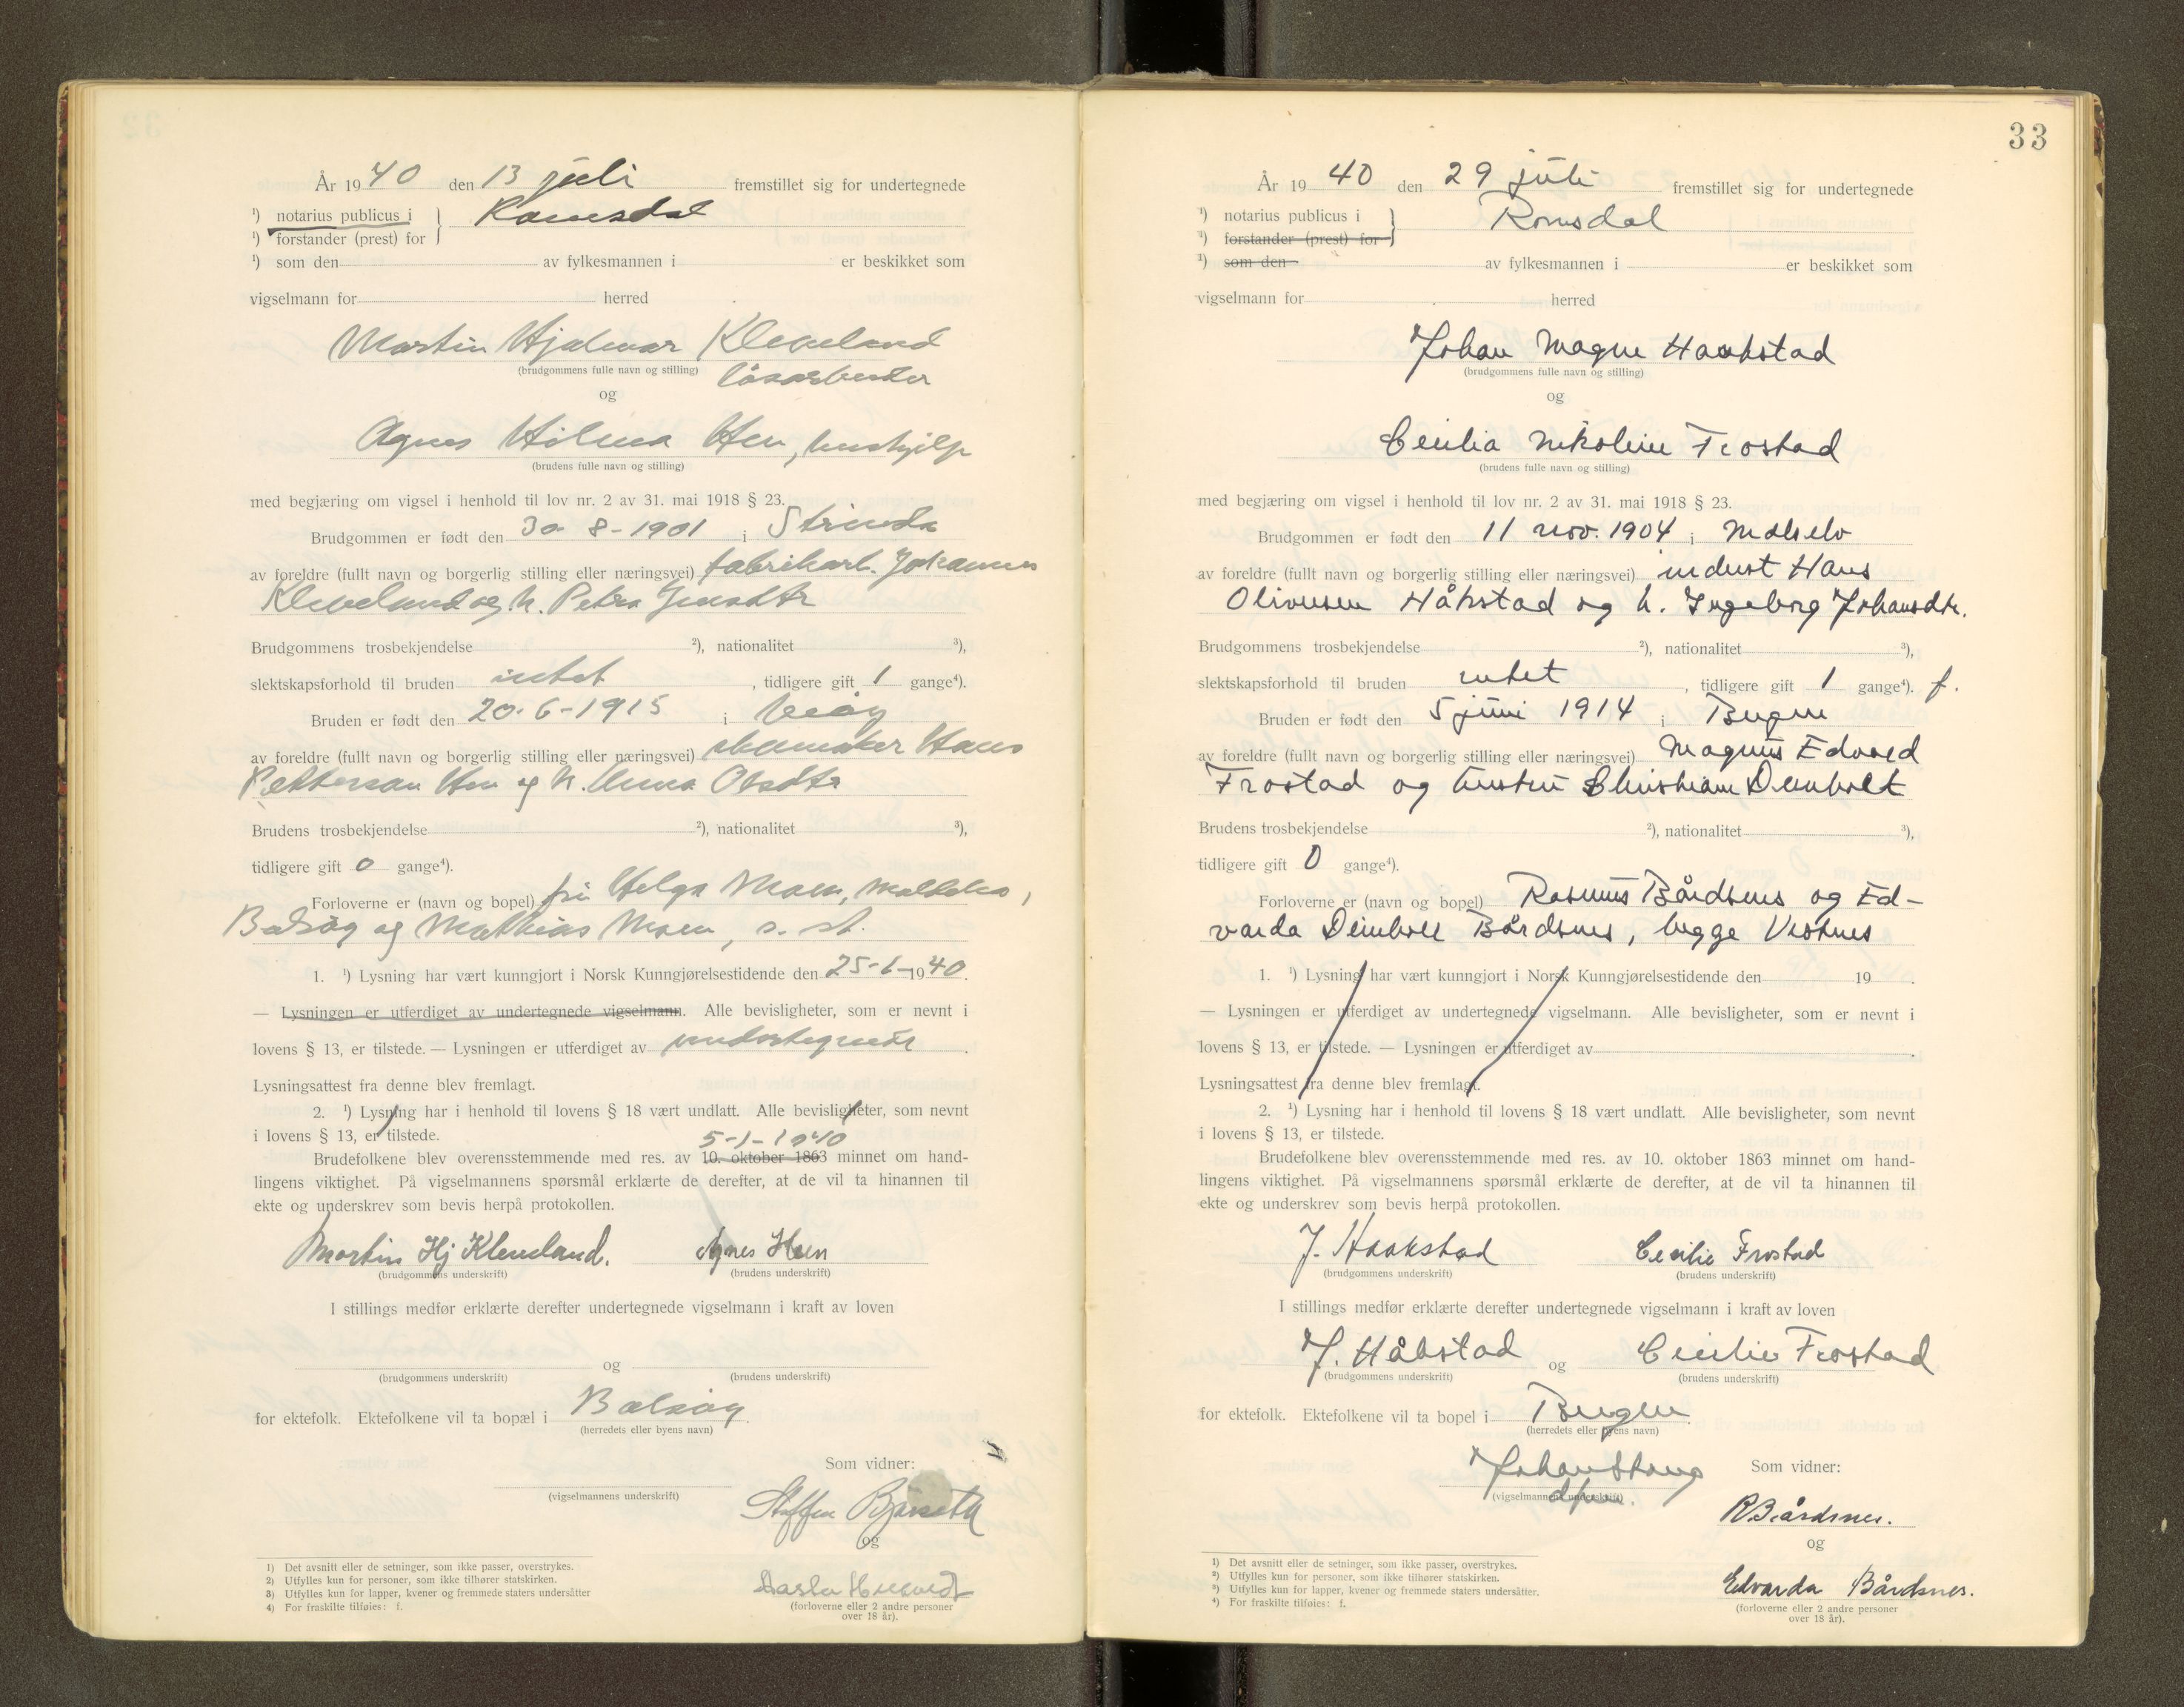 År 1940 den 13 juli fremstillet sig for undertegnede
¹) notarius publicus i } Romsdal
¹) forstander (prest) for
¹) som den av fylkesmannen i er beskikket som
vigselmann for herred
Martin Hjalmar Kleveland
(brudgommens fulle navn og stilling) løsarbeider
og
Agnes Hilma Hen, hushjelp
(brudens fulle navn og stilling)
med begjæring om vigsel i henhold til lov nr. 2 av 31. mai 1918 § 23.
Brudgommen er født den 30-8-1901 i Strinda
av foreldre (fullt navn og borgerlig stilling eller næringsvei) fabrikarb. Johannes
Kleveland og h. Petra Jensdtr
Brudgommens trosbekjendelse ²), nationalitet ³),
slektskapsforhold til bruden intet , tidligere gift 1 gange⁴).
Bruden er født den 20-6-1915 i Veøy
av foreldre (fullt navn og borgerlig stilling eller næringsvei) skomaker Hans
Petterson Hen og h. Anna Olsdtr
Brudens trosbekjendelse ²), nationalitet ³),
tidligere gift 0 gange⁴).
Forloverne er (navn og bopel) fru Helga Moen,
Bolsøy og Mathias Moen, s. st.
1. ¹) Lysning har vært kunngjort i Norsk Kunngjørelsestidende den 25-6-1940.
— Lysningen er utferdiget av undertegnede vigselmann. Alle bevisligheter, som er nevnt i
lovens § 13, er tilstede. — Lysningen er utferdiget av undertegnede .
Lysningsattest fra denne blev fremlagt.
2. ¹) Lysning har i henhold til lovens § 18 vært undlatt. Alle bevisligheter, som nevnt
i lovens § 13, er tilstede.
5-1-1940
Brudefolkene blev overensstemmende med res. av 10. oktober 1863 minnet om hand-
lingens viktighet. På vigselmannens spørsmål erklærte de derefter, at de vil ta hinannen til
ekte og underskrev som bevis herpå protokollen.
Martin Hj Kleveland. Agnes Hen
(brudgommens underskrift) (brudens underskrift)
I stillings medfør erklærte derefter undertegnede vigselmann i kraft av loven
og
(brudgommens underskrift) (brudens underskrift)
for ektefolk. Ektefolkene vil ta bopæl i Bolsøy.
(herredets eller byens navn)
Som vidner:
(vigselmannens underskrift)
Steffen
og
(forloverne eller 2 andre personer
over 18 år).
1) Det avsnitt eller de setninger, som ikke passer, overstrykes.
2) Utfylles kun for personer, som ikke tilhører statskirken.
3) Utfylles kun for lapper, kvener og fremmede staters undersåtter
4) For fraskilte tilføies: f.
33
År 1940 den 29 juli fremstillet sig for undertegnede
¹) notarius publicus i } Romsdal
¹) forstander (prest) for
¹) som den av fylkesmannen i er beskikket som
vigselmann for herred
Johan Magne Haakstad
(brudgommens fulle navn og stilling)
og
Cecilia Nikoline Frostad
(brudens fulle navn og stilling)
med begjæring om vigsel i henhold til lov nr. 2 av 31. mai 1918 § 23.
Brudgommen er født den 11 nov. 1904 i Målselv
av foreldre (fullt navn og borgerlig stilling eller næringsvei) indust Hans
Olivusen Håkstad og h. Ingeborg Johansdtr.
Brudgommens trosbekjendelse ²), nationalitet ³),
slektskapsforhold til bruden intet , tidligere gift 1 gange⁴). f.
Bruden er født den 5 juni 1914 i Bergen
av foreldre (fullt navn og borgerlig stilling eller næringsvei) Magnus Edvard
Frostad og hustru Christiane Deinboll
Brudens trosbekjendelse ²), nationalitet ³),
tidligere gift 0 gange⁴).
Forloverne er (navn og bopel) Rasmus Bårdsnes og Ed-
varda Deinboll Bårdsnes, begge Vestnes
1. ¹) Lysning har vært kunngjort i Norsk Kunngjørelsestidende den 19 .
— Lysningen er utferdiget av undertegnede vigselmann. Alle bevisligheter, som er nevnt i
lovens § 13, er tilstede. — Lysningen er utferdiget av .
Lysningsattest fra denne blev fremlagt.
2. ¹) Lysning har i henhold til lovens § 18 vært undlatt. Alle bevisligheter, som nevnt
i lovens § 13, er tilstede.
Brudefolkene blev overensstemmende med res. av 10. oktober 1863 minnet om hand-
lingens viktighet. På vigselmannens spørsmål erklærte de derefter, at de vil ta hinannen til
ekte og underskrev som bevis herpå protokollen.
J. Haakstad Cecilie Frostad
(brudgommens underskrift) (brudens underskrift)
I stillings medfør erklærte derefter undertegnede vigselmann i kraft av loven
J. Håkstad og Cecilie Frostad
(brudgommens underskrift) (brudens underskrift)
for ektefolk. Ektefolkene vil ta bopel i Bergen.
(herredets eller byens navn)
Johan Stang Som vidner:
(vigselmannens underskrift)
R Bårdsnes.
og
Edvarda Bårdsnes.
(forloverne eller 2 andre personer
over 18 år).
¹) Det avsnitt eller de setninger, som ikke passer, overstrykes.
²) Utfylles kun for personer, som ikke tilhører statskirken.
³) Utfylles kun for lapper, kvener og fremmede staters undersåtter.
⁴) For fraskilte tilføies: f.